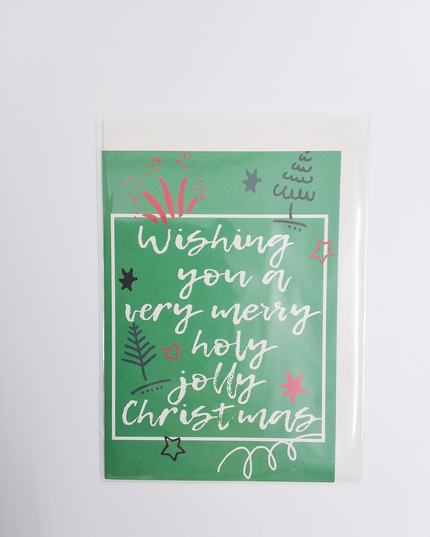 Wishing
you a
very merry
holy
jolly
Christmas